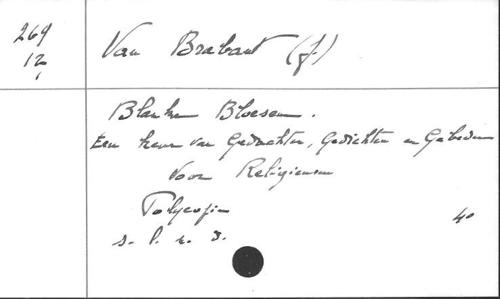 269
12
Van Brabant (J.)
Blanke Bloesem.
Een keur van Gedachten, Gedichten en Gebeden
voor Religieuzen
Polycopie
s. l. n. d.
4°